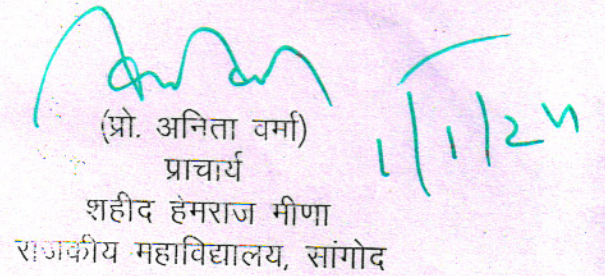 (प्रो. अनिता वर्मा)
1/1/24
प्राचार्य
शहीद हेमराज मीणा
राजकीय महाविद्यालय, सांगोद